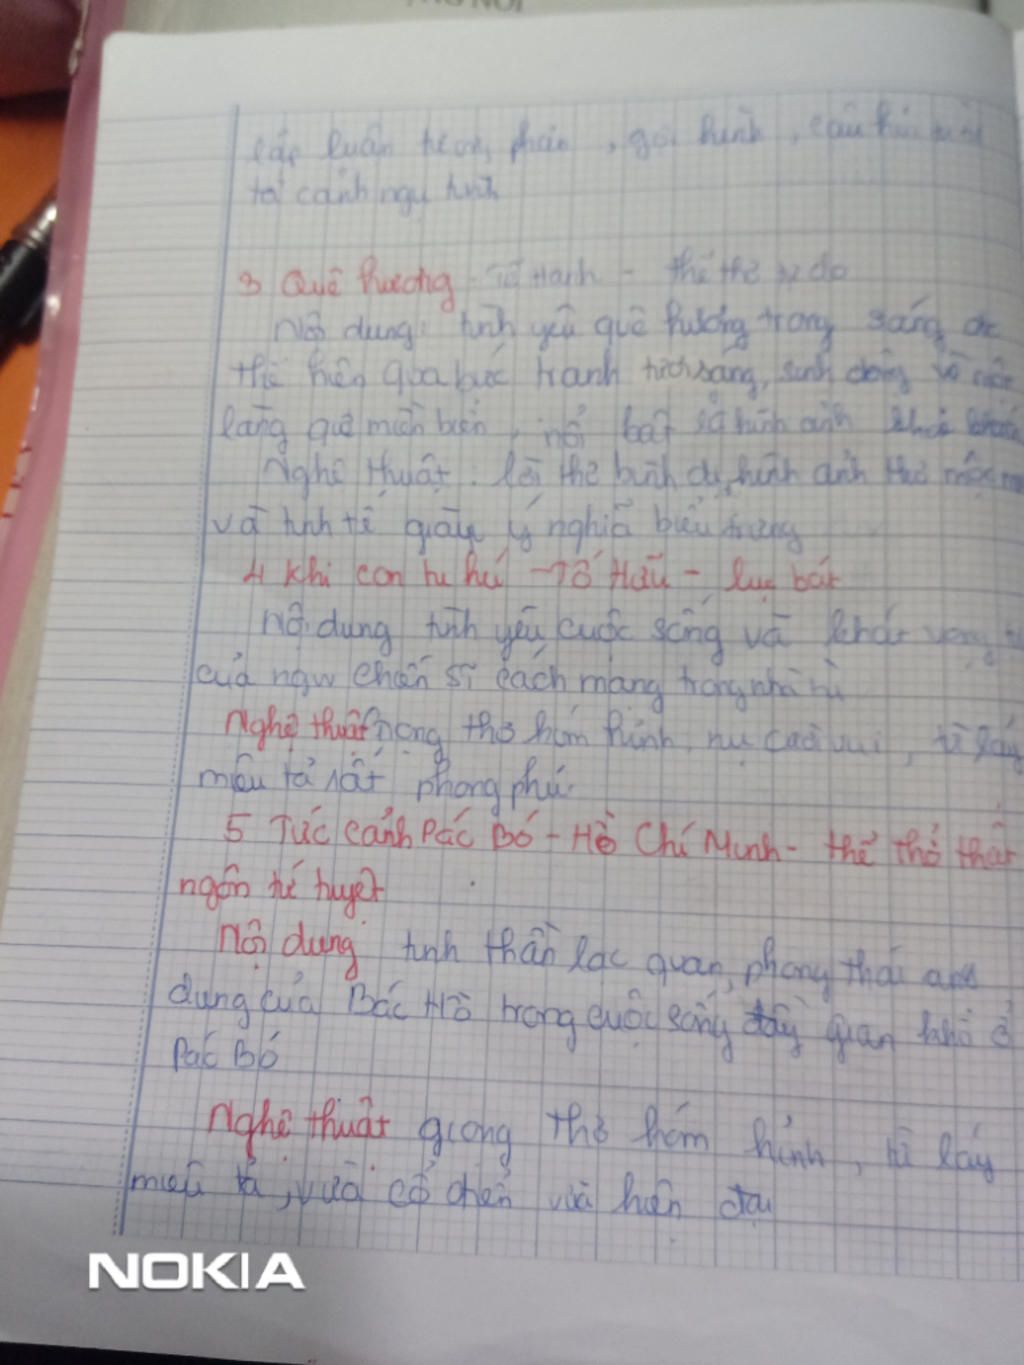 lập luận phản, gợi hình, câu
tả cảnh ngụ tình
3 Quê hương - Tế Hanh - thể thơ tự do
Nội dung: tình yêu quê hương trong sáng đc
thể hiện qua bức tranh tươi sáng, sinh động về một
làng quê miền biển, nổi bật là hình ảnh khỏe
Nghệ thuật: lời thơ bình dị, hình ảnh thơ mộc mạc
và tinh tế giàu ý nghĩa biểu trưng
4 Khi con tu hú - Tố Hữu - lục bát
Nội dung tình yêu cuộc sống và khát vọng
của ngw chiến sĩ cách mạng trong nhà tù
Nghệ thuật giọng thơ hóm hỉnh, nụ cười vui, từ láy
miêu tả rất phong phú.
5 Tức cảnh Pác Bó - Hồ Chí Minh - thể thơ thất
ngôn tứ tuyệt
Nội dung tinh thần lạc quan, phong thái ung
dung của Bác Hồ trong cuộc sống đầy gian khổ ở
Pác Bó
Nghệ thuật giọng thơ hóm hỉnh, từ láy
miêu tả, vừa cổ điển vừa hiện đại
NOKIA